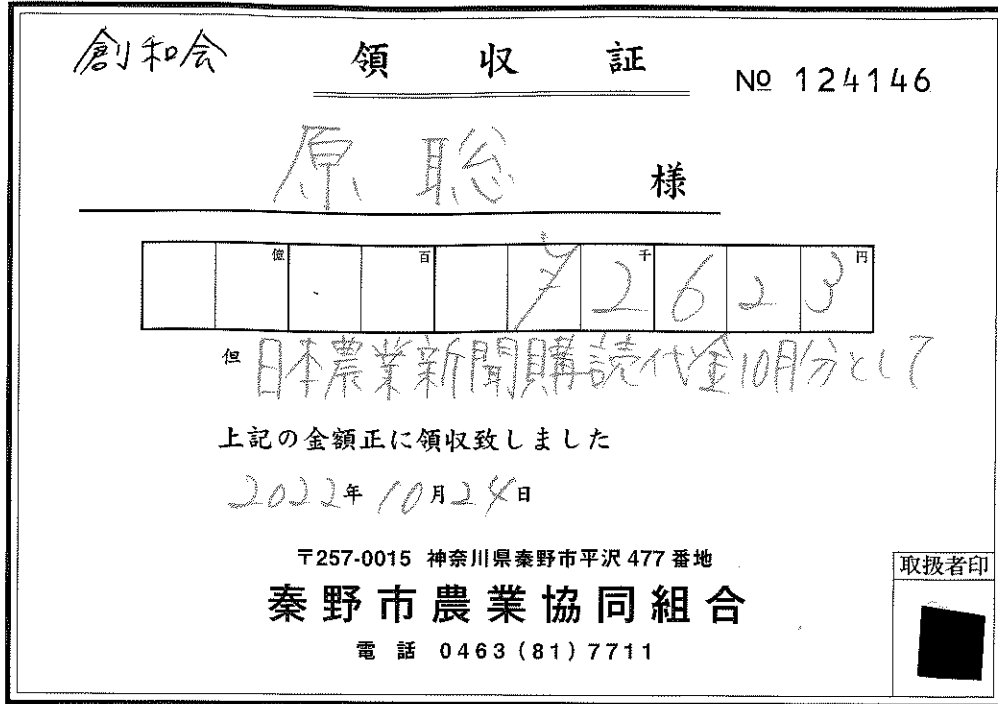 創和会
領収証
№ 124146
原 聡 様
億 百 千 円
¥2623
但 日本農業新聞購読代金10月分として
上記の金額正に領収致しました
2022年10月24日
〒257-0015 神奈川県秦野市平沢477番地
秦野市農業協同組合
電話 0463(81)7711
取扱者印